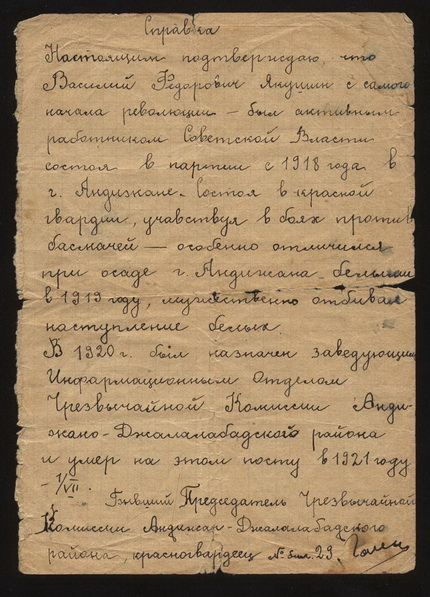 Справка
Настоящим подтверисдаю, что
Василий Федорович Якушин с самого
начала революции - был активным
работником Советской Власти
состоя в партии с 1918 года в
г. Андизнане. Состоя в красной
гвардии, учавствуя в боях против
басмачей — особенно отличился
при осаде г. Андижана белыми
в 1919 году, мужественно отбивая
наступление белых.
В 1920 г. был назначен заведующим
Информационным Отделом
Чрезвычайной Комиссии Анди-
жано-Джалалабадского района
и умер на этом посту в 1921 году
- 1/VII.
Бывший Председатель Чрезвычайной
Комиссии Андижан-Джалалабадского
района, красногвардеец № бил. 29.